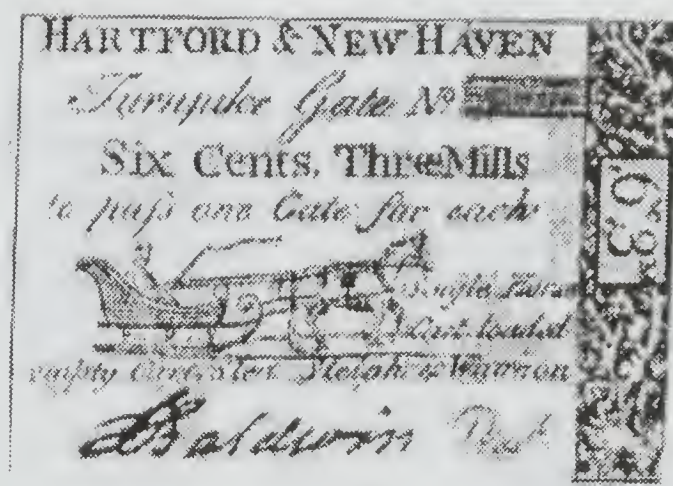 HARTFORD & NEW HAVEN
Turnpike Gate No
Six Cents, Three Mills
to paſs one Gate for each
Cart loaded
empty Sleigh or Waggon
Baldwin
6 3